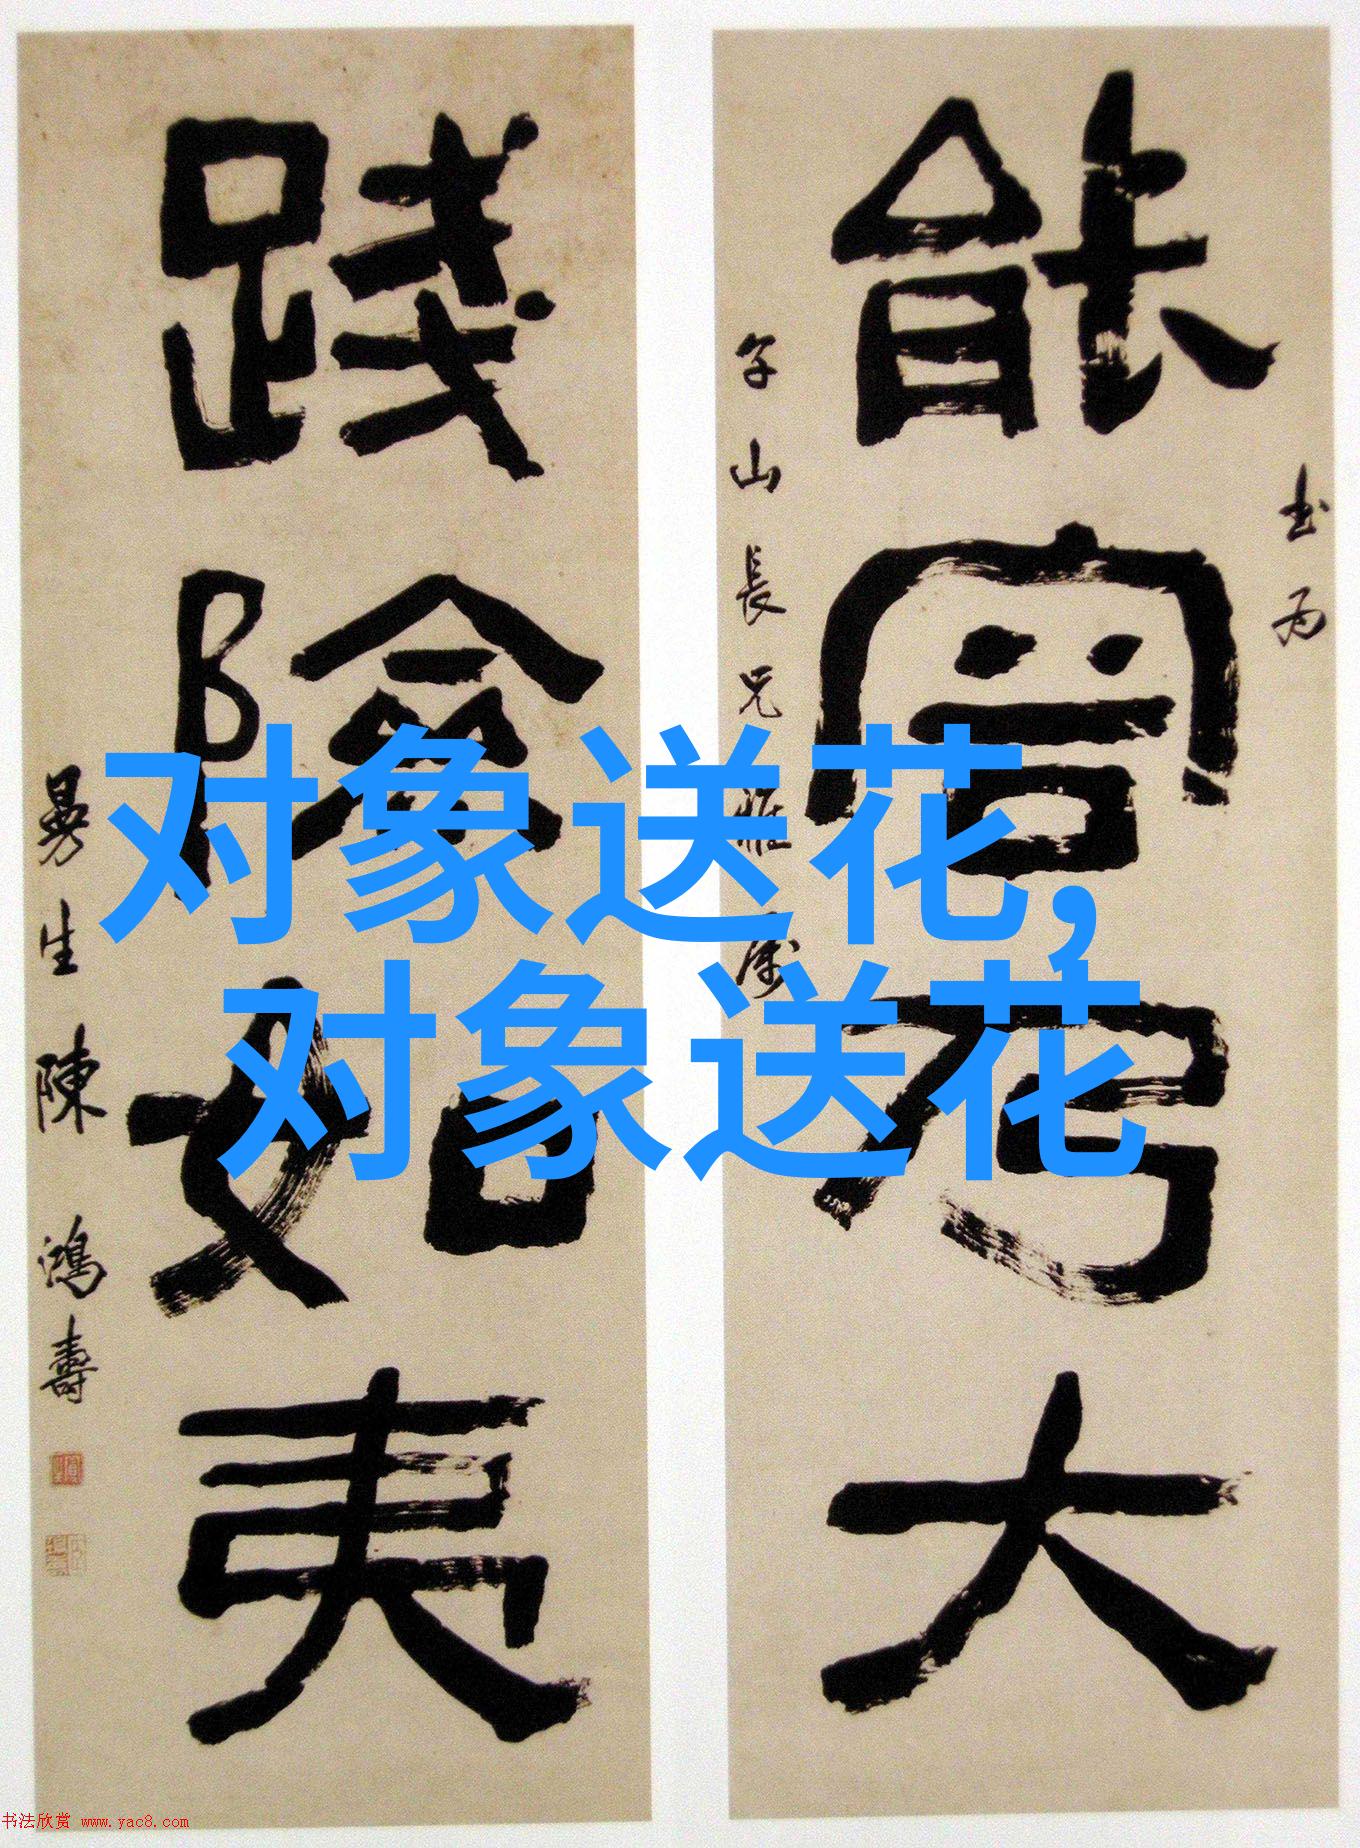 对象送花,
对象送花
能容乃大
書為
子山長兄雅屬
踐險如夷
曼生陳鴻壽
书法欣赏 www.yac8.com